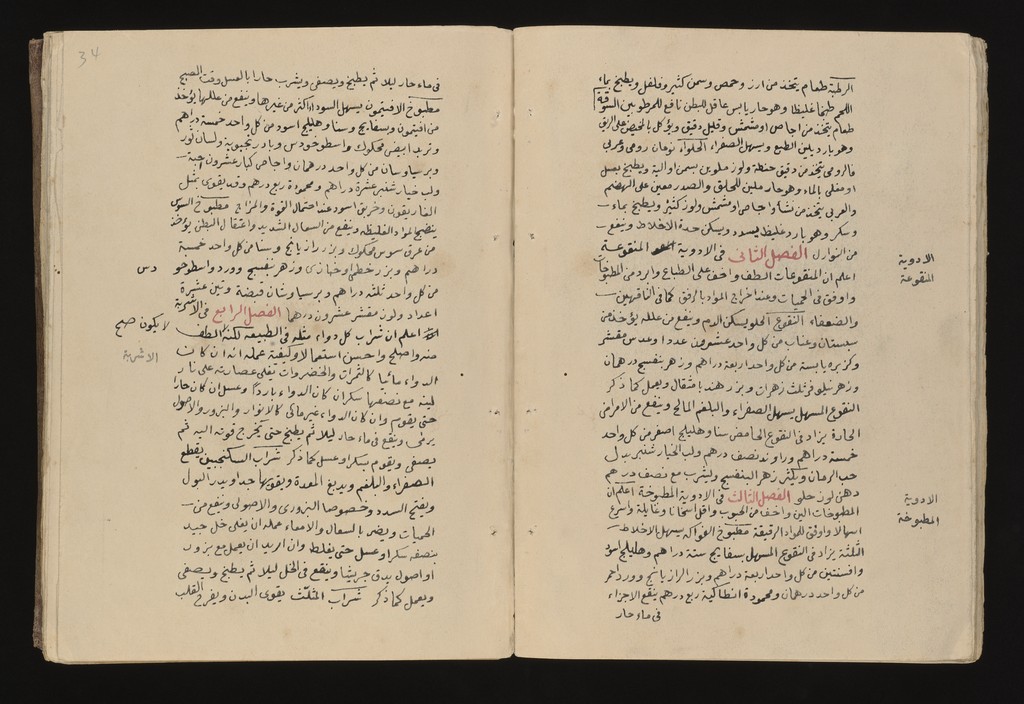 الرطبة طعام يتخذ من ارز وحمص وسمن كثير وفلفل ويطبخ بماء
اللحم طبخا غليظا وهو حار يابس عاقل للبطن نافع للمرطوبين السوقة
طعام يتخذ من اجاص او مشمش وقليل دقيق ويؤكل بالخبز على الريق
وهو بارد يلين الطبع ويسهل الصفراء الحلواء نوعان رومى وعربي
فالرومى يتخذ من دقيق حنطة ولوز ملوين بسمن او الية ويطبخ بعسل
او مغلى بالماء وهو حار ملين للحلق والصدر معين على الهضم
والعربي يتخذ من نشا او اجاص او مشمش ولوز كثير ويطبخ بماء
وسكر وهو بارد غليظ يسدد ويسكن حدة الاخلاط وينفع
من النوازل الفصل الثانى فى الادوية المنقوعة
اعلم ان المنقوعات الطف واخف على الطباع وابرد من المطبوخات
واوفق فى الحميات وعند اخراج المواد بالرفق كما فى الناقهين
والضعفاء النقوع الحلو يسكن الدم وينفع من علله يؤخذ من
سبستان وعناب من كل واحد عشرون عددا وعدس مقشر
وكزبره يابسة من كل واحد اربعة دراهم وزهر بنفسج درهمان
وزهر نيلوفر ثلث زهرات وبزر هندبا مثقال ويعمل كما ذكر
النقوع المسهل يسهل الصفراء والبلغم المالح وينفع من الامراض
الحارة يزاد فى النقوع الحامض سنا وهليلج اصفر من كل واحد
خمسة دراهم وراوند نصف درهم ولب الخيار شنبر بدل
حب الرمان ويكثر زهر البنفسج وليشرب مع نصف درهم
دهن لوز حلو الفصل الثالث فى الادوية المطبوخة اعلم ان
المطبوخات الين واخف من الحبوب واقل اسخانا وغايلة واسرع
اسهالا واوفق للمواد الرقيقة مطبوخ الفواكه يسهل الاخلاط
الثلثة يزاد فى النقوع المسهل بسفايج ستة دراهم وهليلج اسود
وافسنتين من كل واحد اربعة دراهم وبزر الرازيانج وورد احمر
من كل واحد درهمان ومحمودة انطاكية ربع درهم ينقع الاجزاء
فى ماء حار
الادوية
المنقوعة
الادوية
المطبوخة
34
فى ماء حار ليلا ثم يطبخ ويصفى ويشرب حارا بالعسل وقت الصبح
مطبوخ الافتيمون يسهل السوداء اكثر من غيرها وينفع من عللها يؤخذ
من افتيمون وبسفايج وسنا وهليلج اسود من كل واحد خمسة دراهم
وتربد ابيض محكوك واسطوخودس وبادرنجبوية ولسان ثور
وبرسياوسان من كل واحد درهمان واجاص كبار عشرون حبة
ولب خيار شنبر عشرة دراهم ومحمودة ربع درهم وقد يقوى بمثل
الغاريقون وخربق اسود عند احتمال القوة والمزاج مطبوخ السوس
ينضج المواد الغليظة وينفع من السعال الشديد واعتقال البطن يؤخذ
من عرق سوس محكوك وبزر رازيانج وسنا من كل واحد خمسة
دراهم وبزر خطمى وخبازى وزهر بنفسج وورد واسطوخو
من كل واحد ثلثة دراهم وبرسياوشان قبضة وتين عشرة
اعداد ولوز مقشر عشرون درهما الفصل الرابع فى الاشربة
اعلم ان شراب كل دواء مثله فى الطبيعة لكنه الطف
منه واصلح واحسن استعمالا وكيفية عمله انه ان كان
الدواء مائيا كالثمرات والخضروات تغلى عصارته على نار
لينة مع نصفها سكر ان كان الدواء باردا وعسل ان كان حارا
حتى يقوم وان كان الدواء غير مائى كالانوار والبزور والاصول
يرض وينقع فى ماء حار ليلا ثم يطبخ حتى يخرج قوته اليه ثم
يصفى ويقوم بسكر او عسل كما ذكر شراب السكنجبين يقطع
الصفراء والبلغم ويدبغ المعدة ويقويها جدا ويدر البول
ويفتح السدد وخصوصا البزورى والاصولى وينفع من
الحميات ويضر بالسعال والامعاء عمله ان يغلى خل جيد
بنصفه سكر او عسل حتى يغلظ وان اريد ان يعمل مع بزور
او اصول يدق جريشا وينقع فى الخل ليلا ثم يطبخ ويصفى
ويعمل كما ذكر شراب المثلث يقوى البدن ويفرح القلب
دس
لا يكون صح
الاشربة